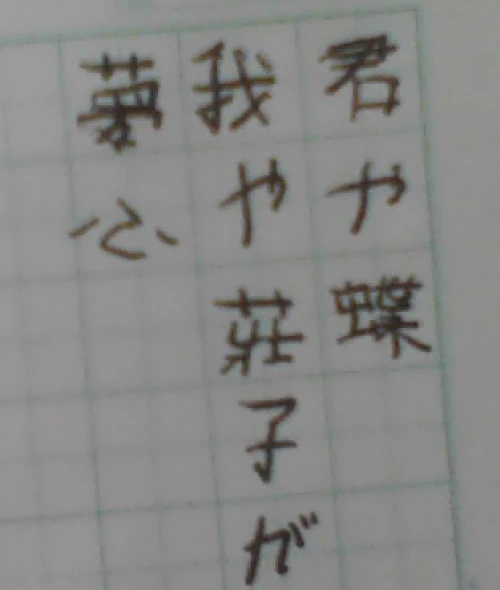 君や蝶
我や荘子が
夢心